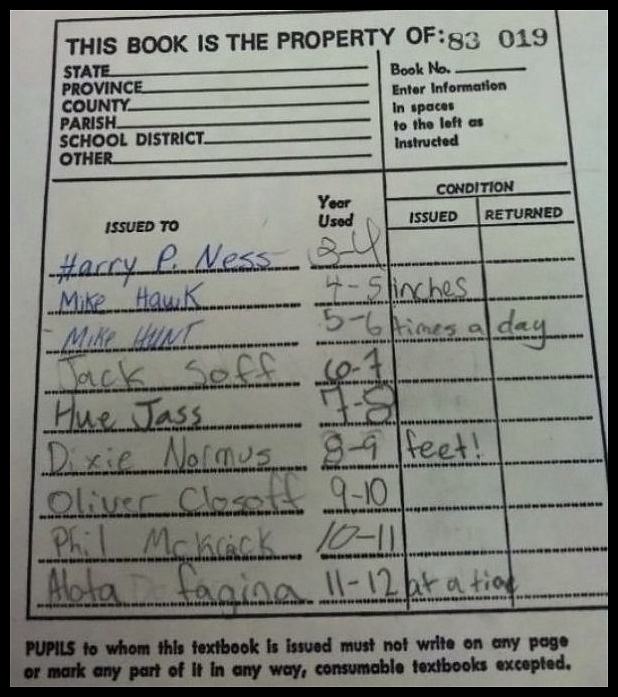 THIS BOOK IS THE PROPERTY OF: 83 019
STATE
PROVINCE
COUNTY
PARISH
SCHOOL DISTRICT
OTHER
Book No.
Enter Information
In spaces
to the left as
Instructed
CONDITION
ISSUED TO Year Used ISSUED RETURNED
Harry P. Ness 3-4
Mike Hawk 4-5 inches
Mike HUNT 5-6 times a day
Jack Soff 6-7
Hue Jass 7-8
Dixie Normus 8-9 feet!
Oliver Closoff 9-10
Phil McKrack 10-11
Alota fagina 11-12 at a time
PUPILS to whom this textbook is issued must not write on any page
or mark any part of it in any way, consumable textbooks excepted.